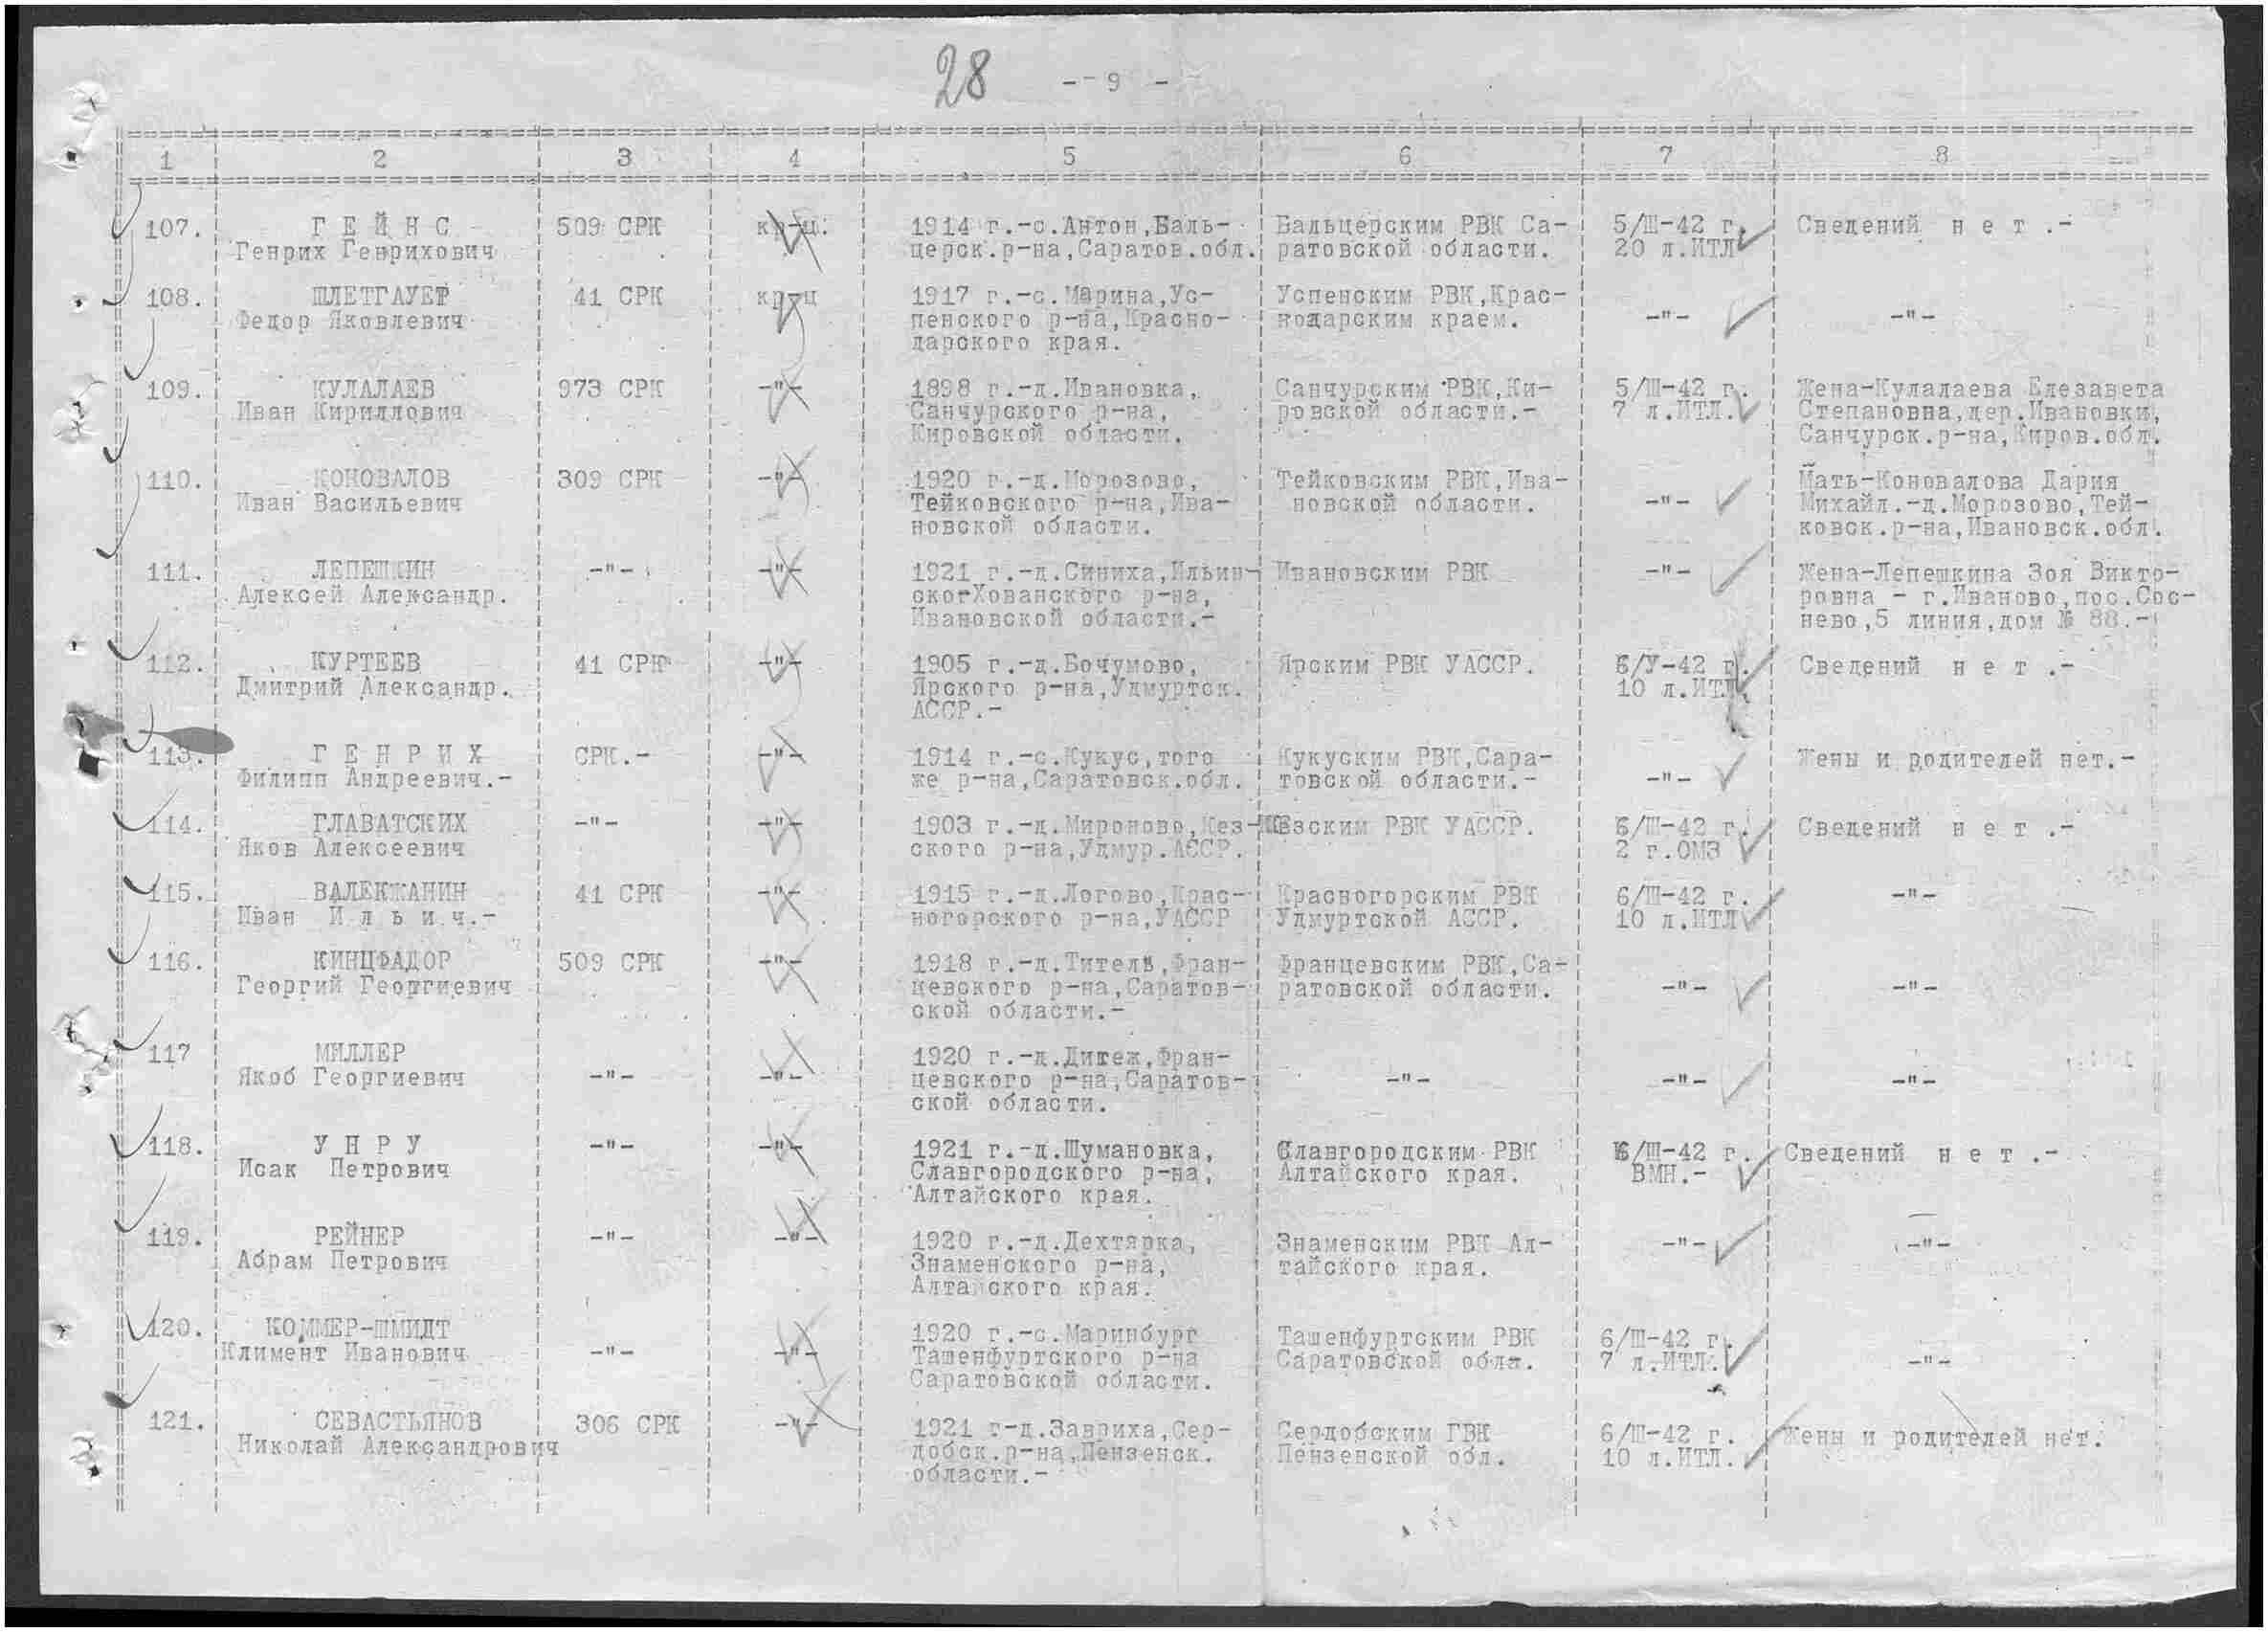 28 -- 9 -
1 2 3 4 5 6 7 8
107. Г Е Й Н С 509 СРК кр-ц. 1914 г.-с.Антон,Баль- Бальцерским РВК Са- 5/Ш-42 г. Сведений н е т .-
Генрих Генрихович церск.р-на,Саратов.обл. ратовской области. 20 л.ИТЛ
108. ШЛЕТГАУЕР 41 СРК кр-ц 1917 г.-с.Марина,Ус- Успенским РВК,Крас-
Федор Яковлевич пенского р-на,Красно- нодарским краем. -"- -"-
дарского края.
109. КУЛАЛАЕВ 973 СРК -"- 1898 г.-д.Ивановка, Санчурским РВК,Ки- 5/Ш-42 г. Жена-Кулалаева Елезавета
Иван Кириллович Санчурского р-на, ровской области.- 7 л.ИТЛ. Степановна,дер.Ивановки,
Кировской области. Санчурск.р-на,Киров.обл.
110. КОНОВАЛОВ 309 СРК -"- 1920 г.-д.Морозово, Тейковским РВК,Ива- Мать-Коновалова Дария
Иван Васильевич Тейковского р-на,Ива- новской области. -"- Михайл.-д.Морозово,Тей-
новской области. ковск.р-на,Ивановск.обл.
111. ЛЕПЕШКИН -"- -"- 1921 г.-д.Синиха,Ильин- Ивановским РВК -"- Жена-Лепешкина Зоя Викто-
Алексей Александр. ско-Хованского р-на, ровна - г.Иваново,пос.Сос-
Ивановской области.- нево,5 линия,дом № 88.-
112. КУРТЕЕВ 41 СРК -"- 1905 г.-д.Бочумово, Ярским РВК УАССР. 6/У-42 г. Сведений н е т .-
Дмитрий Александр. Ярского р-на,Удмуртск. 10 л.ИТЛ.
АССР.-
113. Г Е Н Р И Х СРК.- -"- 1914 г.-с.Кукус,того Кукуским РВК,Сара- Жены и родителей нет.-
Филипп Андреевич.- же р-на,Саратовск.обл. товской области.- -"-
114. ГЛАВАТСКИХ -"- -"- 1903 г.-д.Мироново,Кез- Кезским РВК УАССР. 6/Ш-42 г. Сведений н е т .-
Яков Алексеевич ского р-на,Удмур.АССР. 2 г.ОМЗ
115. ВАЛЕКЖАНИН 41 СРК -"- 1915 г.-д.Логово,Крас- Красногорским РВК 6/Ш-42 г. -"-
Иван И л ь и ч.- ногорского р-на,УАССР Удмуртской АССР. 10 л.ИТЛ
116. КИНЦФАДОР 509 СРК -"- 1918 г.-д.Титель,Фран- Францевским РВК,Са-
Георгий Георгиевич цевского р-на,Саратов- ратовской области. -"- -"-
ской области.-
117 МИЛЛЕР 1920 г.-д.Дитеж,Фран-
Якоб Георгиевич -"- -"- цевского р-на,Саратов- -"- -"- -"-
ской области.
118. У Н Р У -"- -"- 1921 г.-д.Шумановка, Славгородским РВК 6/Ш-42 г. Сведений н е т .-
Исак Петрович Славгородского р-на, Алтайского края. ВМН.-
Алтайского края.
119. РЕЙНЕР -"- -"- 1920 г.-д.Дехтярка, Знаменским РВК Ал- -"- -"-
Абрам Петрович Знаменского р-на, тайского края.
Алтайского края.
120. КОММЕР-ШМИДТ 1920 г.-с.Маринбург Ташенфуртским РВК 6/Ш-42 г.
Климент Иванович -"- -"- Ташенфуртского р-на Саратовской обла. 7 л.ИТЛ. -"-
Саратовской области.
121. СЕВАСТЬЯНОВ 306 СРК -"- 1921 г-д.Завриха,Сер- Сердобским ГВК 6/Ш-42 г. Жены и родителей нет.
Николай Александрович добск.р-на,Пензенск. Пензенской обл. 10 л.ИТЛ.
области.-